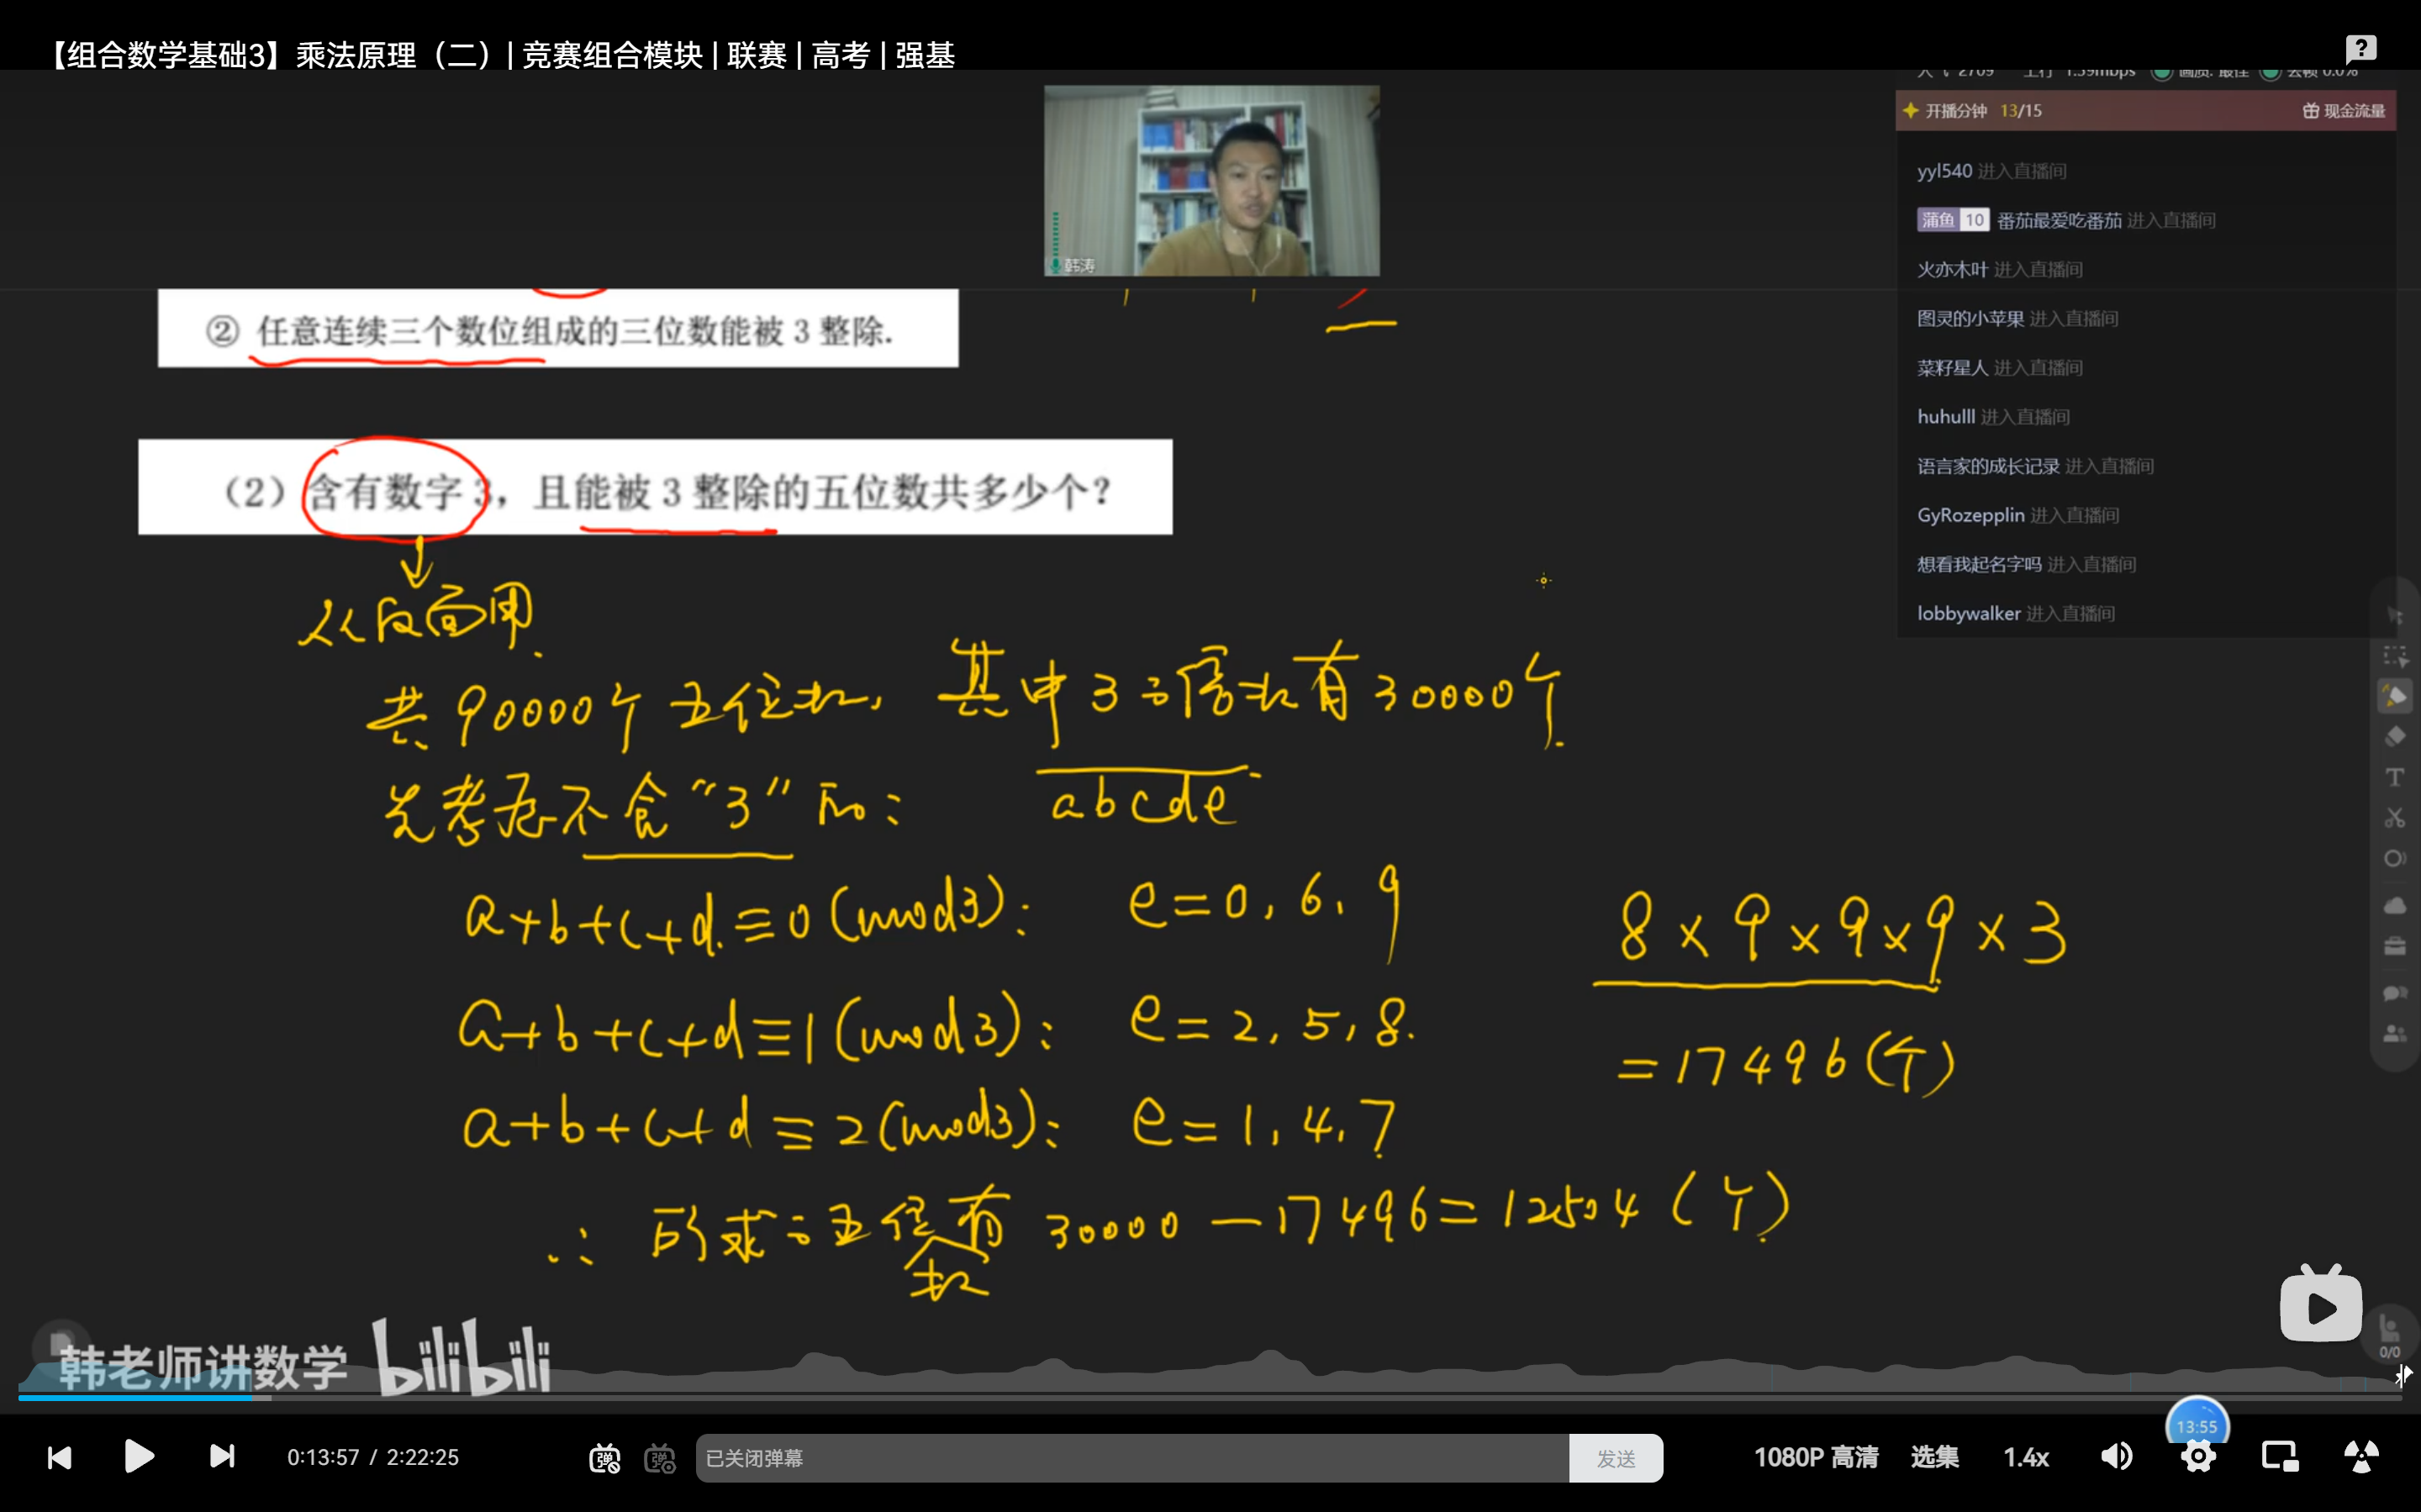 【组合数学基础3】乘法原理（二）| 竞赛组合模块 | 联赛 | 高考 | 强基
开播分钟 13/15 现金流量
韩涛
yyl540 进入直播间
蒲鱼 10 番茄最爱吃番茄 进入直播间
火亦木叶 进入直播间
图灵的小苹果 进入直播间
菜籽星人 进入直播间
huhulll 进入直播间
语言家的成长记录 进入直播间
GyRozepplin 进入直播间
想看我起名字吗 进入直播间
lobbywalker 进入直播间
② 任意连续三个数位组成的三位数能被 3 整除.
（2）含有数字 3，且能被 3 整除的五位数共多少个？
从反面用.
共90000个五位数, 其中3的倍数有30000个.
先考虑不含“3”的: abcde
a+b+c+d≡0(mod3): e=0, 6, 9
8×9×9×9×3
a+b+c+d≡1(mod3): e=2, 5, 8.
=17496(个)
a+b+c+d≡2(mod3): e=1, 4, 7
∴ 所求的五位数有 30000-17496=12504(个)
韩老师讲数学 bilibili
0/0
13:55
0:13:57 / 2:22:25 弹 弹 已关闭弹幕 发送 1080P 高清 选集 1.4x